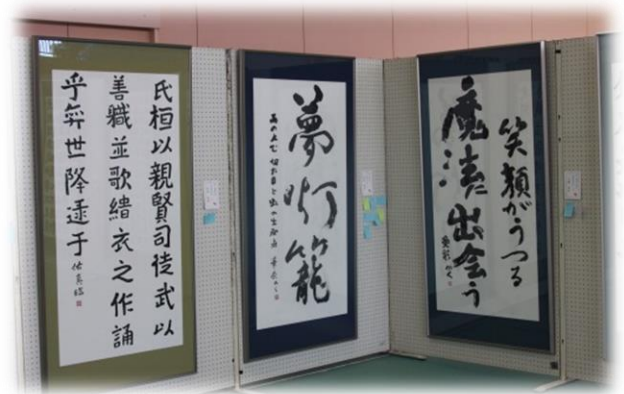 氏桓以親賢司徒武以
善職並歌緇衣之作誦
乎弈世降逮于
夢灯籠
笑顔がうつる
魔法に出会う